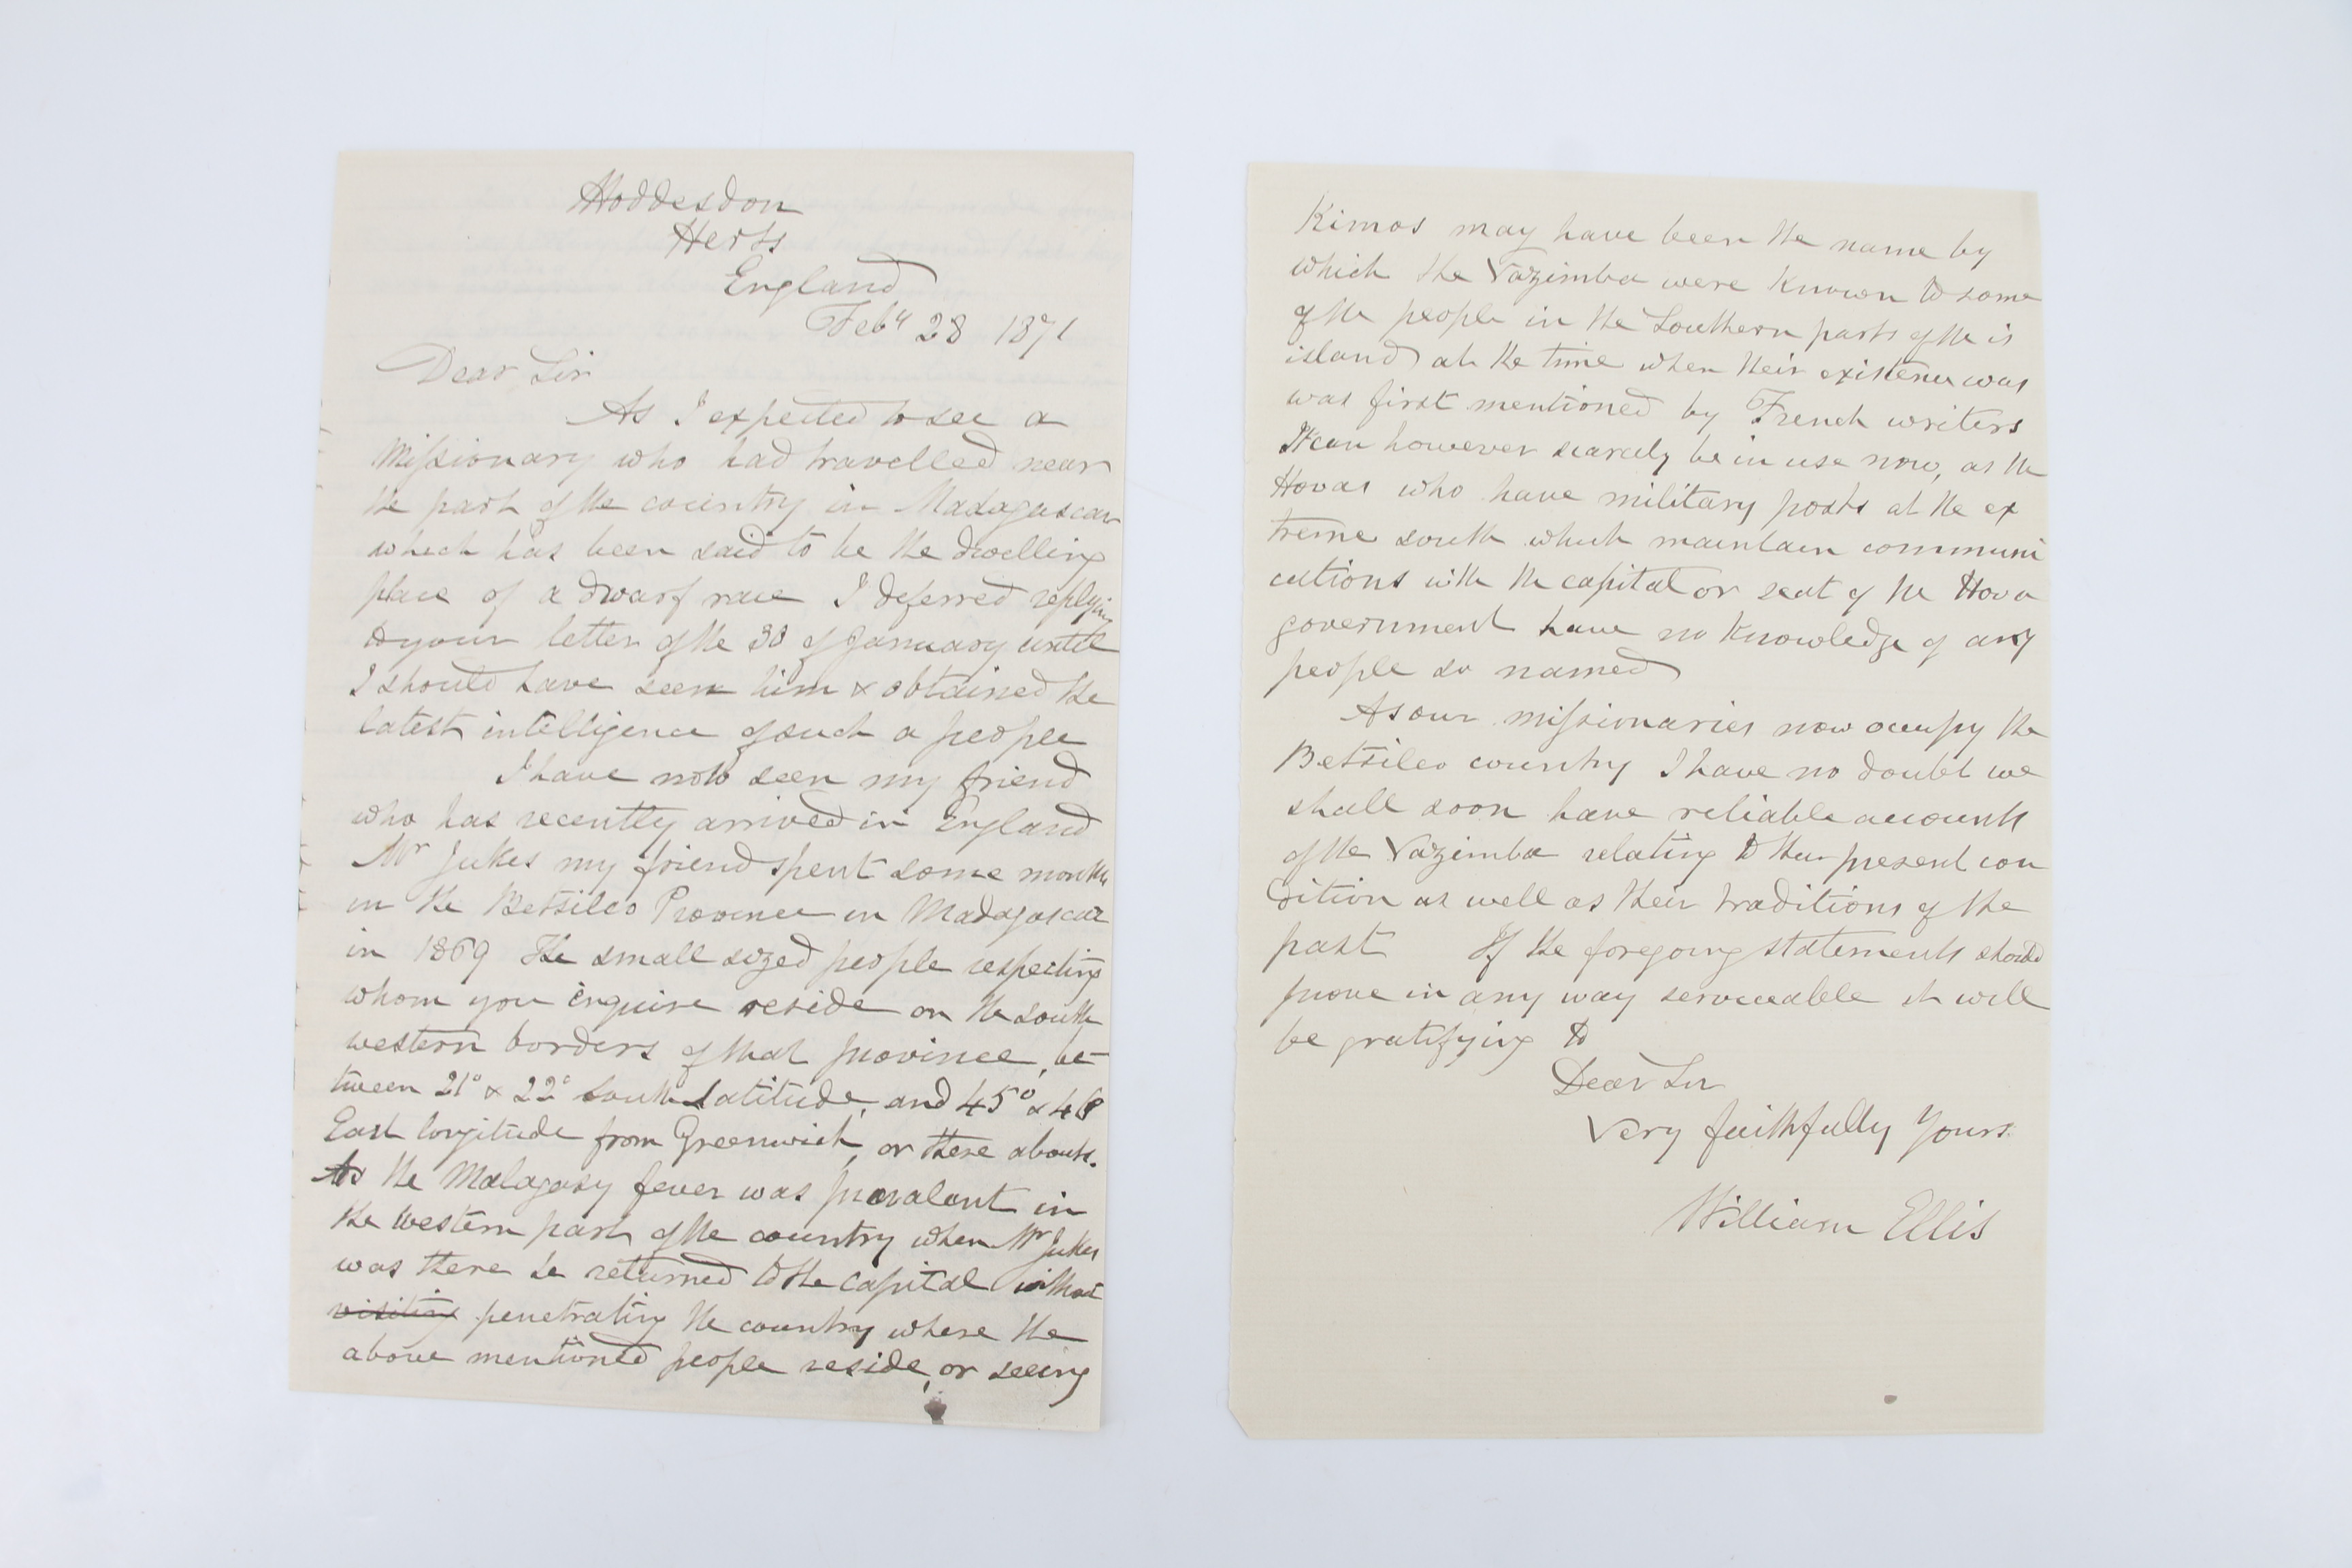 Hoddesdon
Herts
England
Feby 28 1871
Dear Sir
As I expected to see a
missionary who had travelled near
the part of the country in Madagascar
which has been said to be the dwelling
place of a dwarf race I deferred replying
to your letter of the 30 of January until
I should have seen him & obtained the
latest intelligence of such a people
I have now seen my friend
who has recently arrived in England
Mr Jukes my friend spent some months
in the Betsileo Province in Madagascar
in 1869 The small sized people respecting
whom you inquire reside on the south
western borders of that province, be-
tween 21° & 22° South Latitude, and 45° & 46°
East longitude from Greenwich, or there abouts.
As the Malagasy fever was prevalent in
the western part of the country when Mr Jukes
was there he returned to the capital without
visiting penetrating the country where the
above mentioned people reside, or seeing
Kimos may have been the name by
which the Vazimba were known to some
of the people in the Southern parts of the is
island at the time when their existence was
was first mentioned by French writers
It can however scarcely be in use now, as the
Hovas who have military posts at the ex
treme south which maintain communi
cations with the capital or seat of the Hova
government have no knowledge of any
people so named
As our missionaries now occupy the
Betsileo country I have no doubt we
shall soon have reliable accounts
of the Vazimba relating to their present con
dition as well as their traditions of the
past If the foregoing statements should
prove in any way serviceable it will
be gratifying to
Dear Sir
Very faithfully Yours
William Ellis